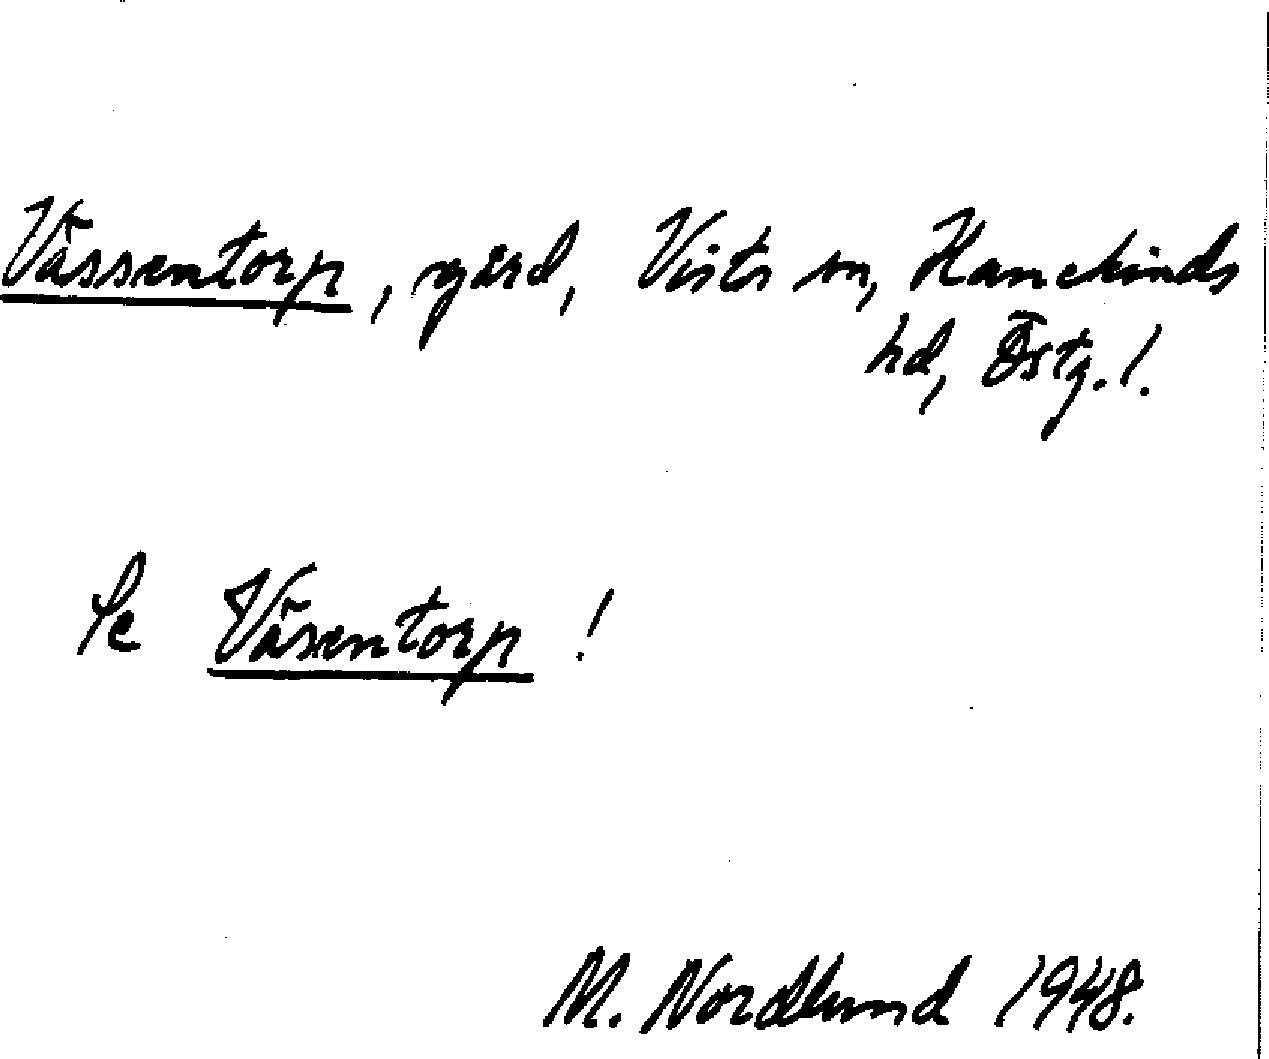 Vässentorp, gård, Vists sn, Hanekinds
hd, Östg. l.
Se Väsentorp!
M. Nordlund 1948.